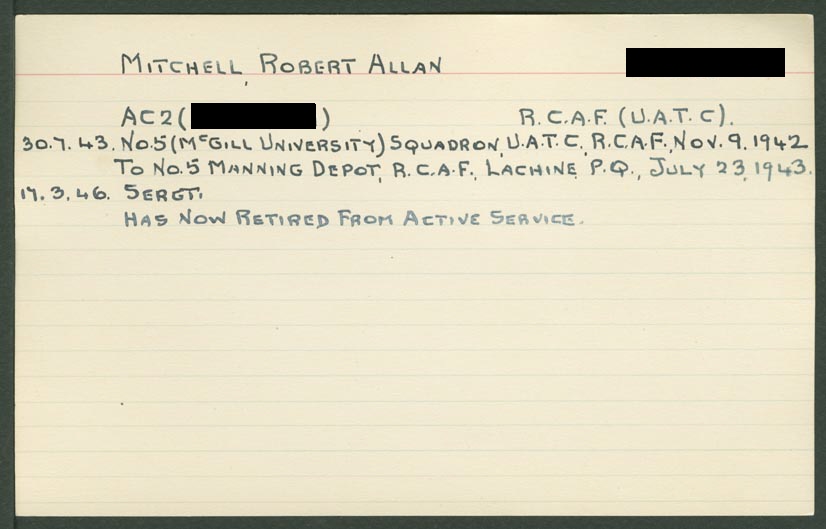 MITCHELL, ROBERT ALLAN
AC2 ( ) R.C.A.F. (U.A.T.C).
30.7.43. NO.5 (McGILL UNIVERSITY) SQUADRON, U.A.T.C, R.C.A.F., NOV. 9, 1942
TO NO.5 MANNING DEPOT, R.C.A.F., LACHINE, P.Q., JULY 23, 1943.
17.3.46. SERGT.
HAS NOW RETIRED FROM ACTIVE SERVICE.